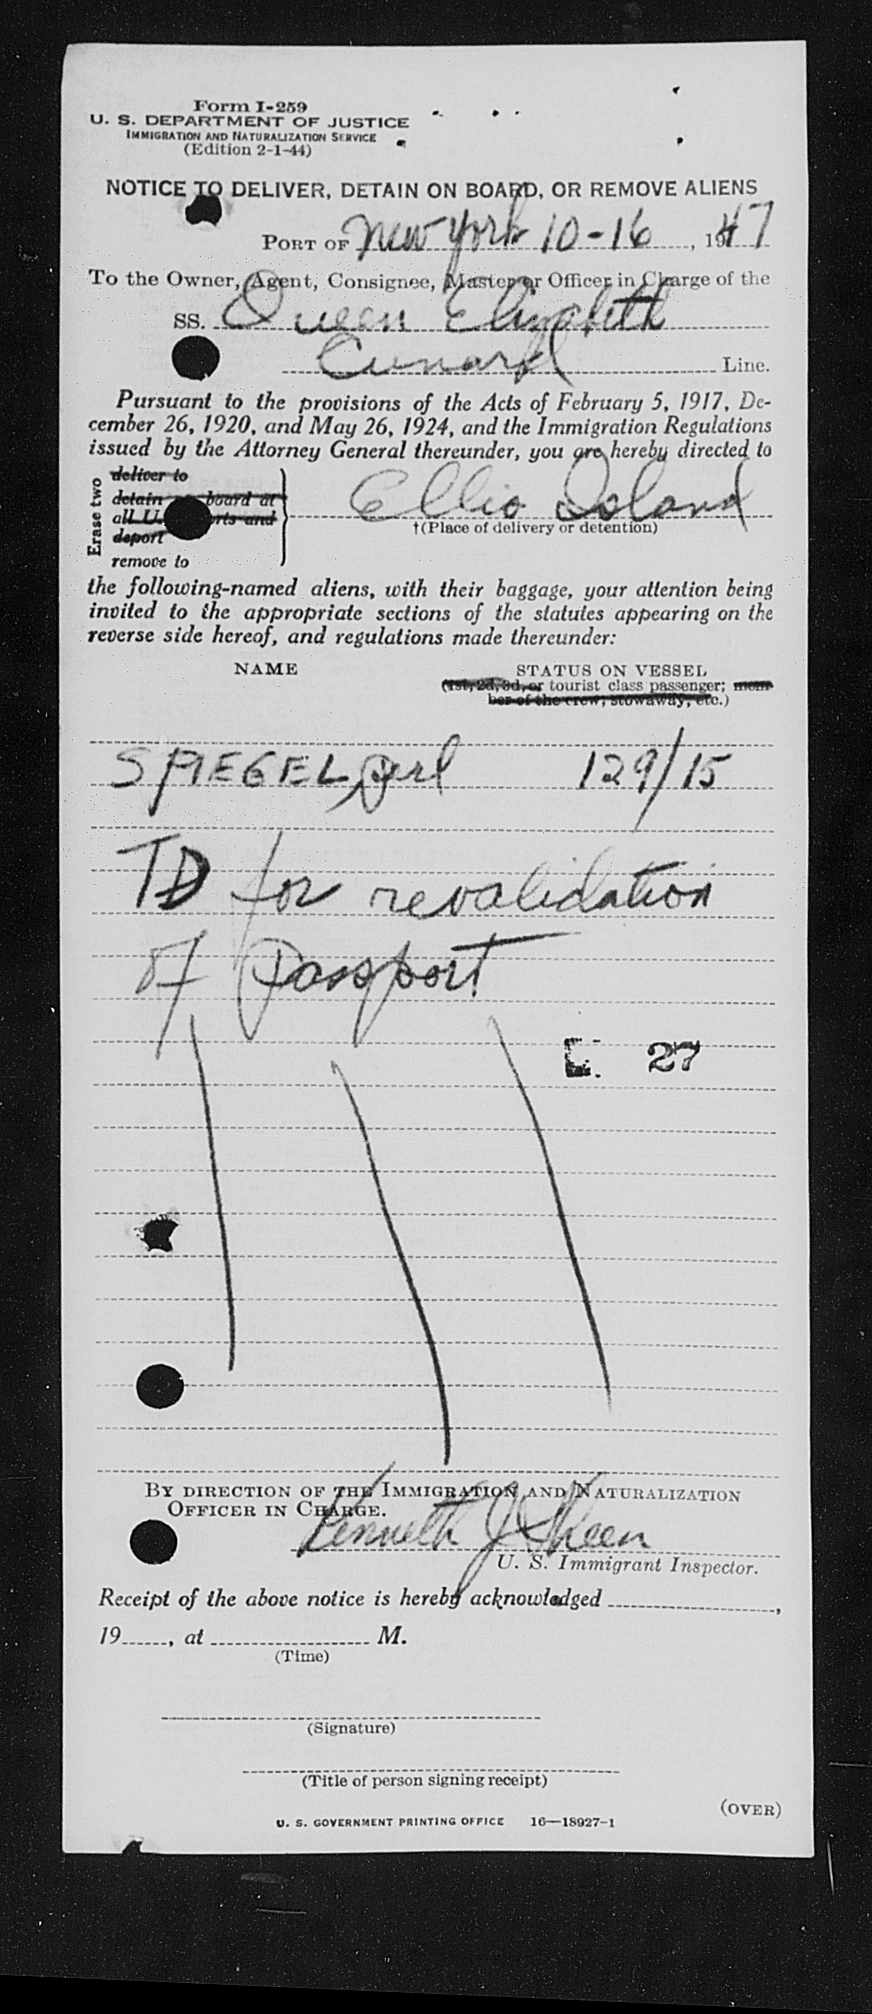 Form I-259
U. S. DEPARTMENT OF JUSTICE
IMMIGRATION AND NATURALIZATION SERVICE
(Edition 2-1-44)
NOTICE TO DELIVER, DETAIN ON BOARD, OR REMOVE ALIENS
PORT OF New York 10-16, 1947
To the Owner, Agent, Consignee, Master or Officer in Charge of the
SS. Queen Elizabeth
Cunard Line.
Pursuant to the provisions of the Acts of February 5, 1917, De-
cember 26, 1920, and May 26, 1924, and the Immigration Regulations
issued by the Attorney General thereunder, you are hereby directed to
Erase two
deliver to
detain board at
all U. and
deport
remove to
Ellis Island
†(Place of delivery or detention)
the following-named aliens, with their baggage, your attention being
invited to the appropriate sections of the statutes appearing on the
reverse side hereof, and regulations made thereunder:
NAME STATUS ON VESSEL
(1st, 2d, 3d, or tourist class passenger; mem-
ber of the crew; stowaway, etc.)
SPIEGEL, 129/15
TD for revalidation
of Passport
27
BY DIRECTION OF THE IMMIGRATION AND NATURALIZATION
OFFICER IN CHARGE.
Kenneth J Sheen
U. S. Immigrant Inspector.
Receipt of the above notice is hereby acknowledged ,
19 , at M.
(Time)
(Signature)
(Title of person signing receipt)
(OVER)
U. S. GOVERNMENT PRINTING OFFICE 16—18927-1